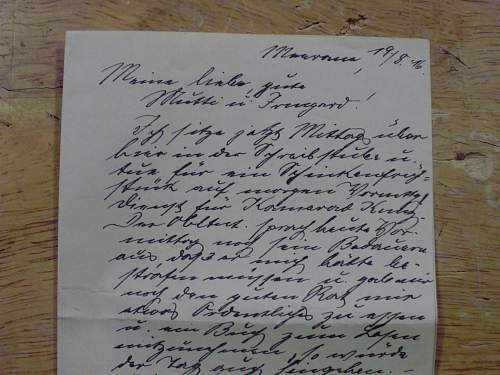 Meerane, 19/8. 16.
Meine liebe, gute
Mutti u. Irmgard!
Ich sitze jetzt Mittag über
hier in der Schreibstube u.
tue für ein Schinkenfrüh-
stück auf morgen Vormittg
Dienst für Kamerad
Der Obltnt. sprach heute Vor-
mittag noch sein Bedauern
aus, dass er mich hätte be-
strafen müssen u. gab mir
noch den guten Rat mir
etwas Ordentliches zu essen
u. ein Buch zum Lesen
mitzunehmen, so würde
der Tag auch hingehen. –